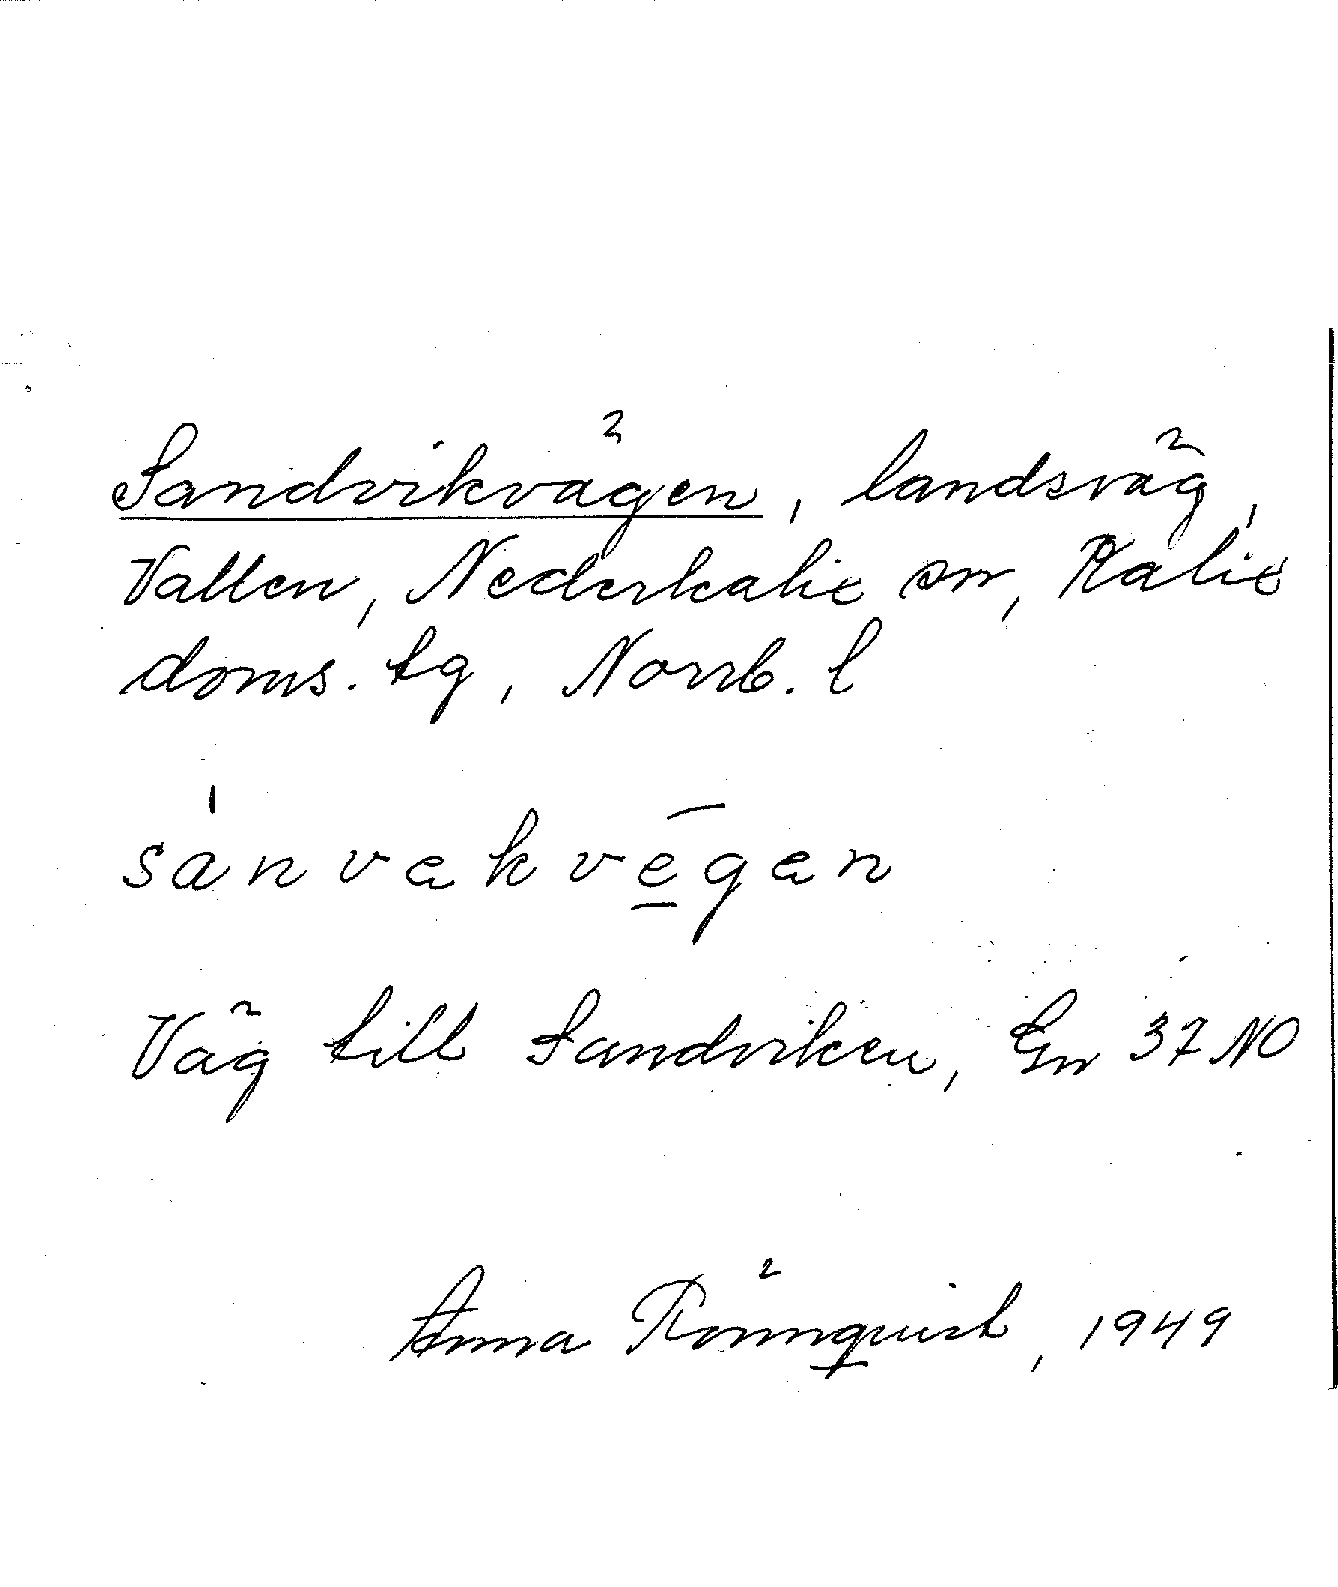 Sandvikvägen, landsväg,
Vallen, Nederkalix sn, Kalix
doms. tg, Norrb. l
sánvəkvē̱gən
Väg till Sandviken, Gn 37 NO
Anna Rönnquist, 1949